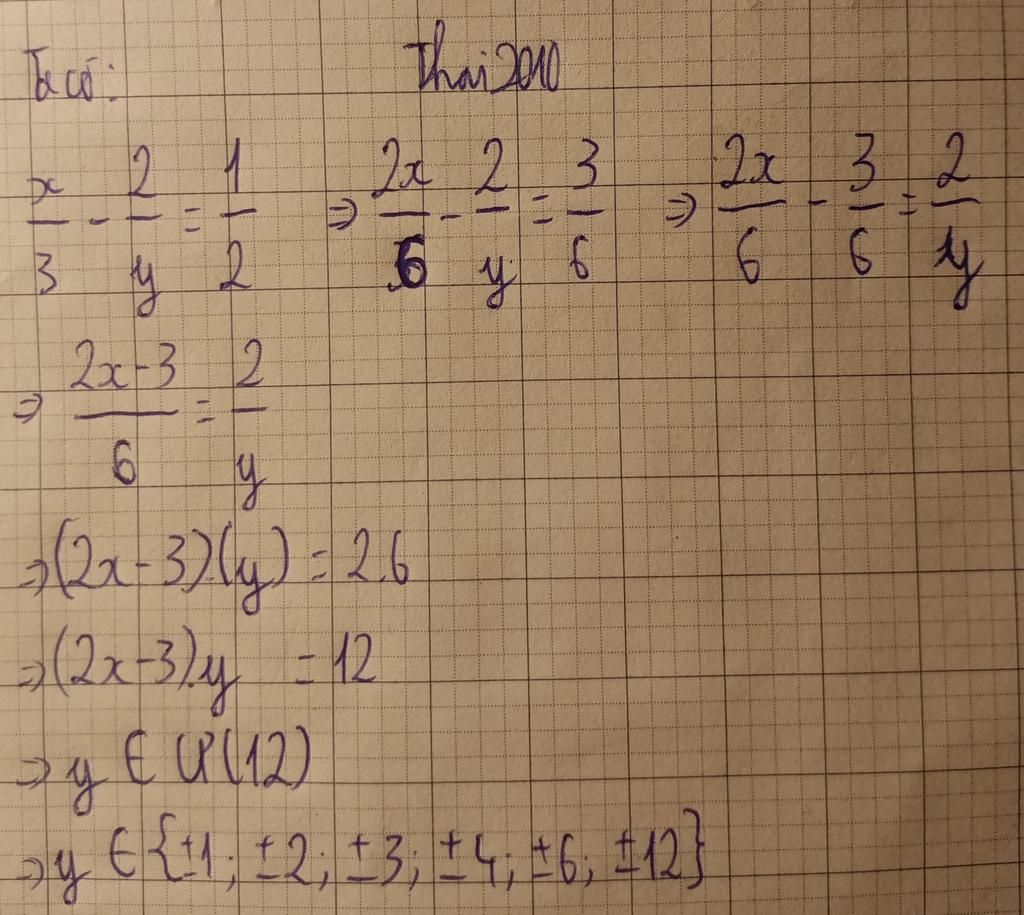 Ta có: Thai2010
x/3 - 2/y = 1/2 ⇒ 2x/6 - 2/y = 3/6 ⇒ 2x/6 - 3/6 = 2/y
⇒ (2x-3)/6 = 2/y
⇒ (2x-3).(y) = 2.6
⇒ (2x-3).y = 12
⇒ y ∈ Ư(12)
⇒ y ∈ {±1; ±2; ±3; ±4; ±6; ±12}